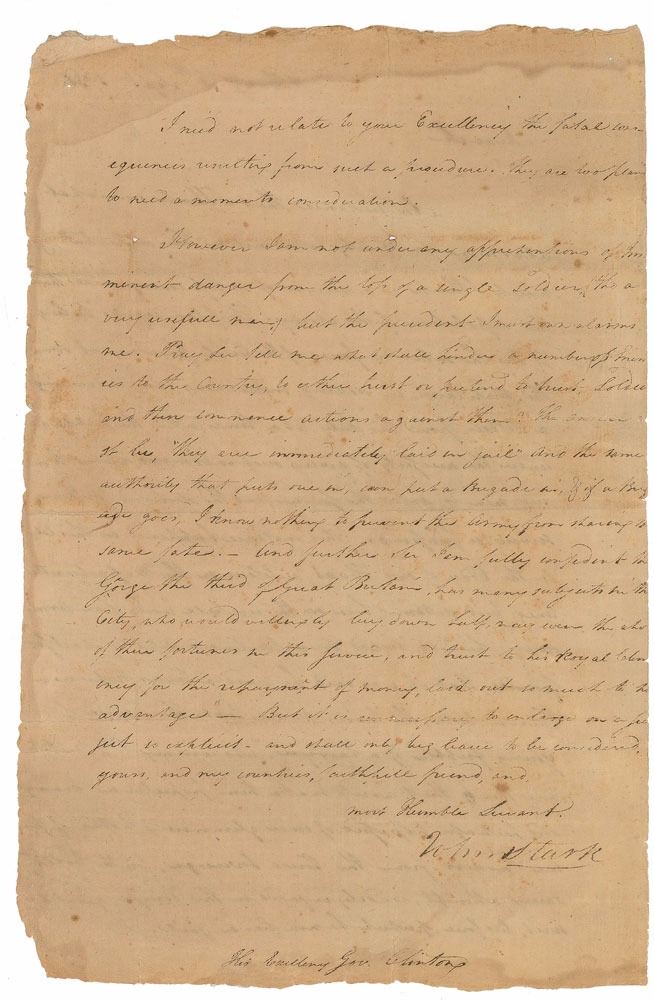 I need not relate to your Excellency the fatal con-
equences resulting from such a procedure. they are too plain
to need a moments consideration.
However I am not under any apprehensions of Im
minent danger from the loss of a single Soldier, (tho a
very usefull man) but the president I must own alarms
me. Pray Sir tell me what shall hinder a number of Enem
ies to this Country, to either hurt or pretend to hurt, Soldie
and then commence actions against them? The answer
st be, "they are immediately laid in jail" And the same
authority that puts one in, can put a Brigade in, & if a Brig
ade goes, I know nothing to prevent the Army from sharing
same fate. — And further Sir I am fully confident
Gorge the third of Great Britain, has many subjects in th
City, who would willingly lay down half, nay even the who
of their fortunes in this Service, and trust to his Royal Clem
ency for the repayment of money, laid out so much to h
advantage" — But it is unnecessary to enlarge on a
ject so explicit - and shall only beg leave to be considered,
yours, and my countries, faithfull friend, and,
most Humble Servant.
John Stark
His Excellency Gov. Clinton